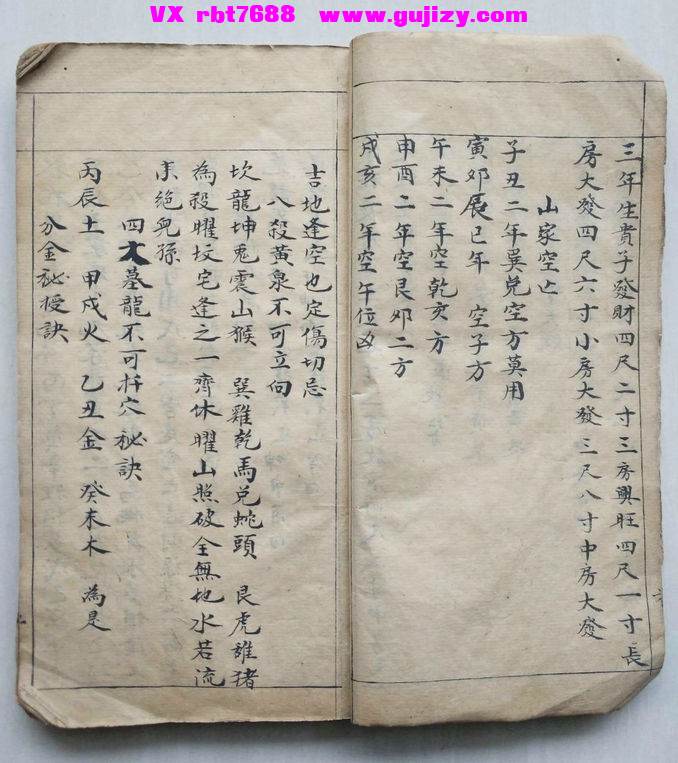 VX rbt7688 www.gujizy.com
三年生貴子發財四尺二寸三房興旺四尺一寸長
房大發四尺六寸小房大發三尺八寸中房大發
山家空亡
子丑二年巽兌空方莫用
寅卯辰巳年 空子方
午未二年空乾亥方
申酉二年空艮卯二方
戌亥二年空午位凶
吉地逢空也定傷切忌
八殺黃泉不可立向
坎龍坤兎震山猴 巽雞乾馬兌蛇頭 艮虎離猪
為殺曜坟宅逢之一齊休曜山照破全無地水若流
來絕兒孫
四大墓龍不可扦穴秘訣
丙辰土 甲戌火 乙丑金 癸未木 為是
分金秘授訣